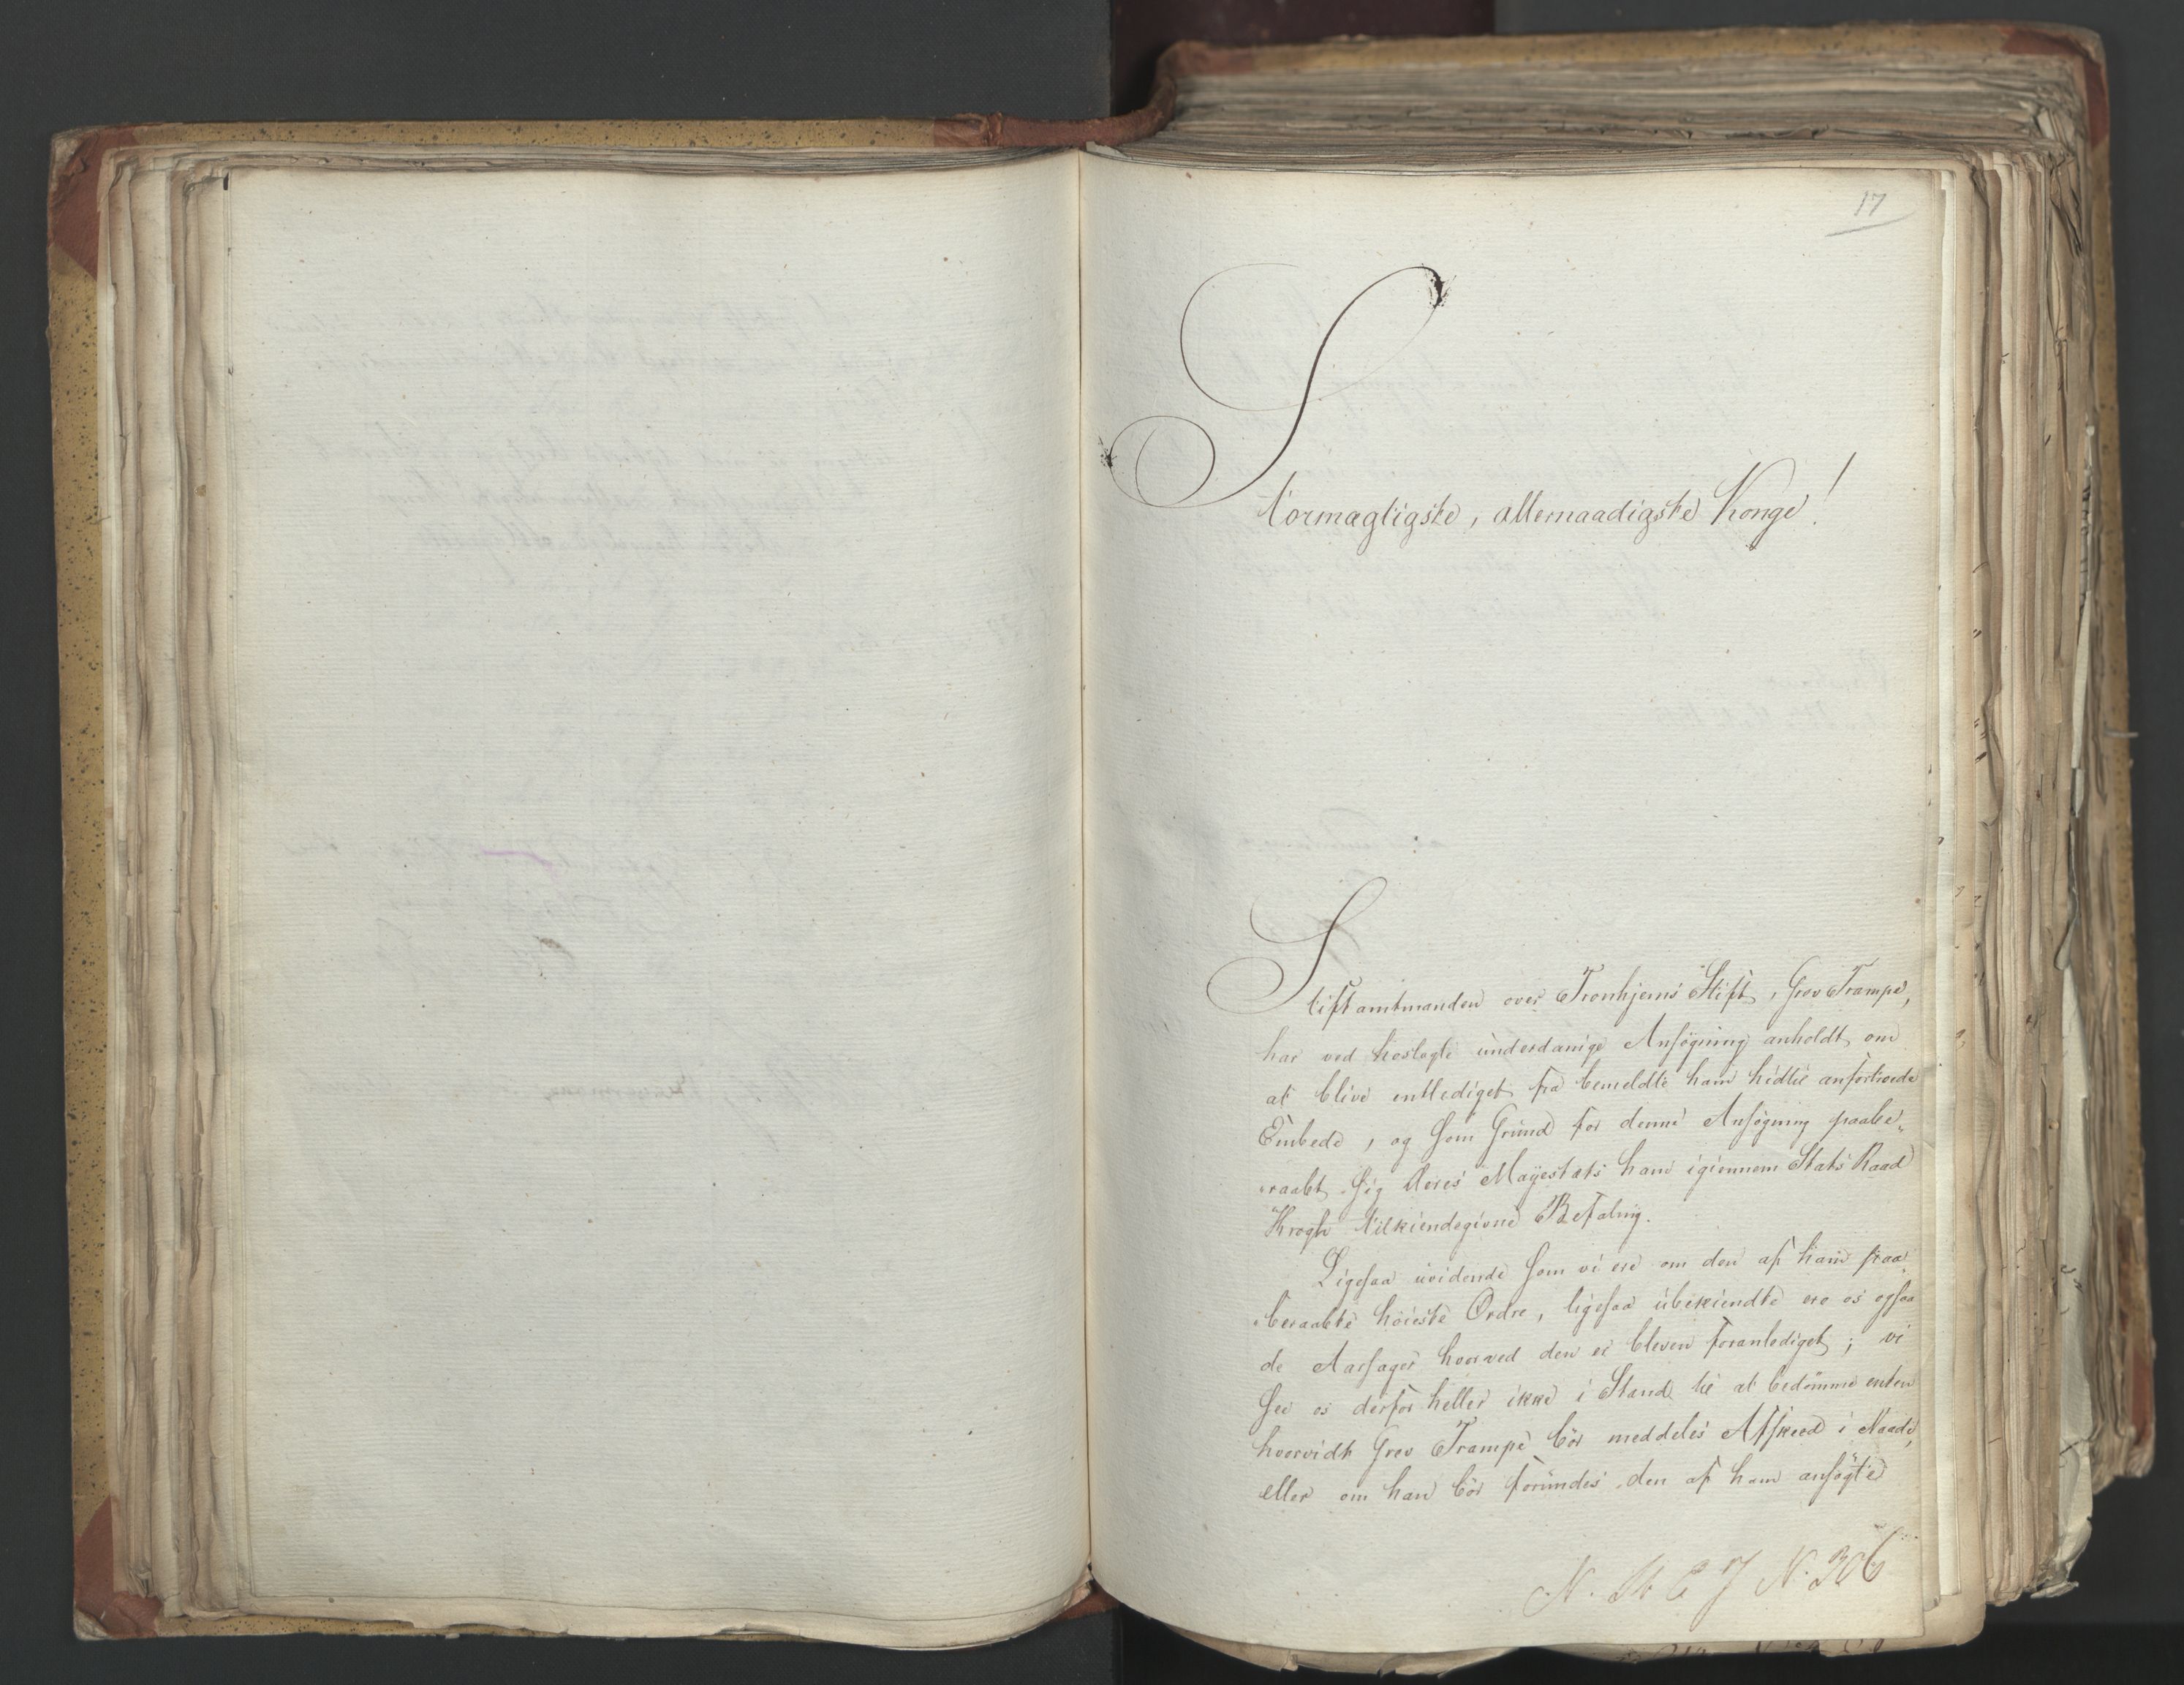 17
Stormægtigste, allernaadigste Konge!
Stiftamtmanden over Tronhjems Stift, Grev Trampe,
har ved hoslagte underdanige Ansögning anholdt om
at blive entlediget fra bemeldte ham hidtil anfortroede
Embede, og som Grund for denne Ansögning paabe„
„raabt sig Deres Mayestæts ham igiennem Stats Raad
Krogh tilkiendegivne Befaling.
Ligesaa uvidende som vi ere om den af ham paa„
„beraabte höieste Ordre, ligesaa ubekiendte ere os ogsaa
de Aarsager hvorved den er bleven foranlediget; vi
see os derfor heller ikke i Stand til at bedömme enten
hvorvidt Grev Trampe bör meddeles Afskeed i Naade,
eller om han bör forundes den af ham ansögte
N. 306